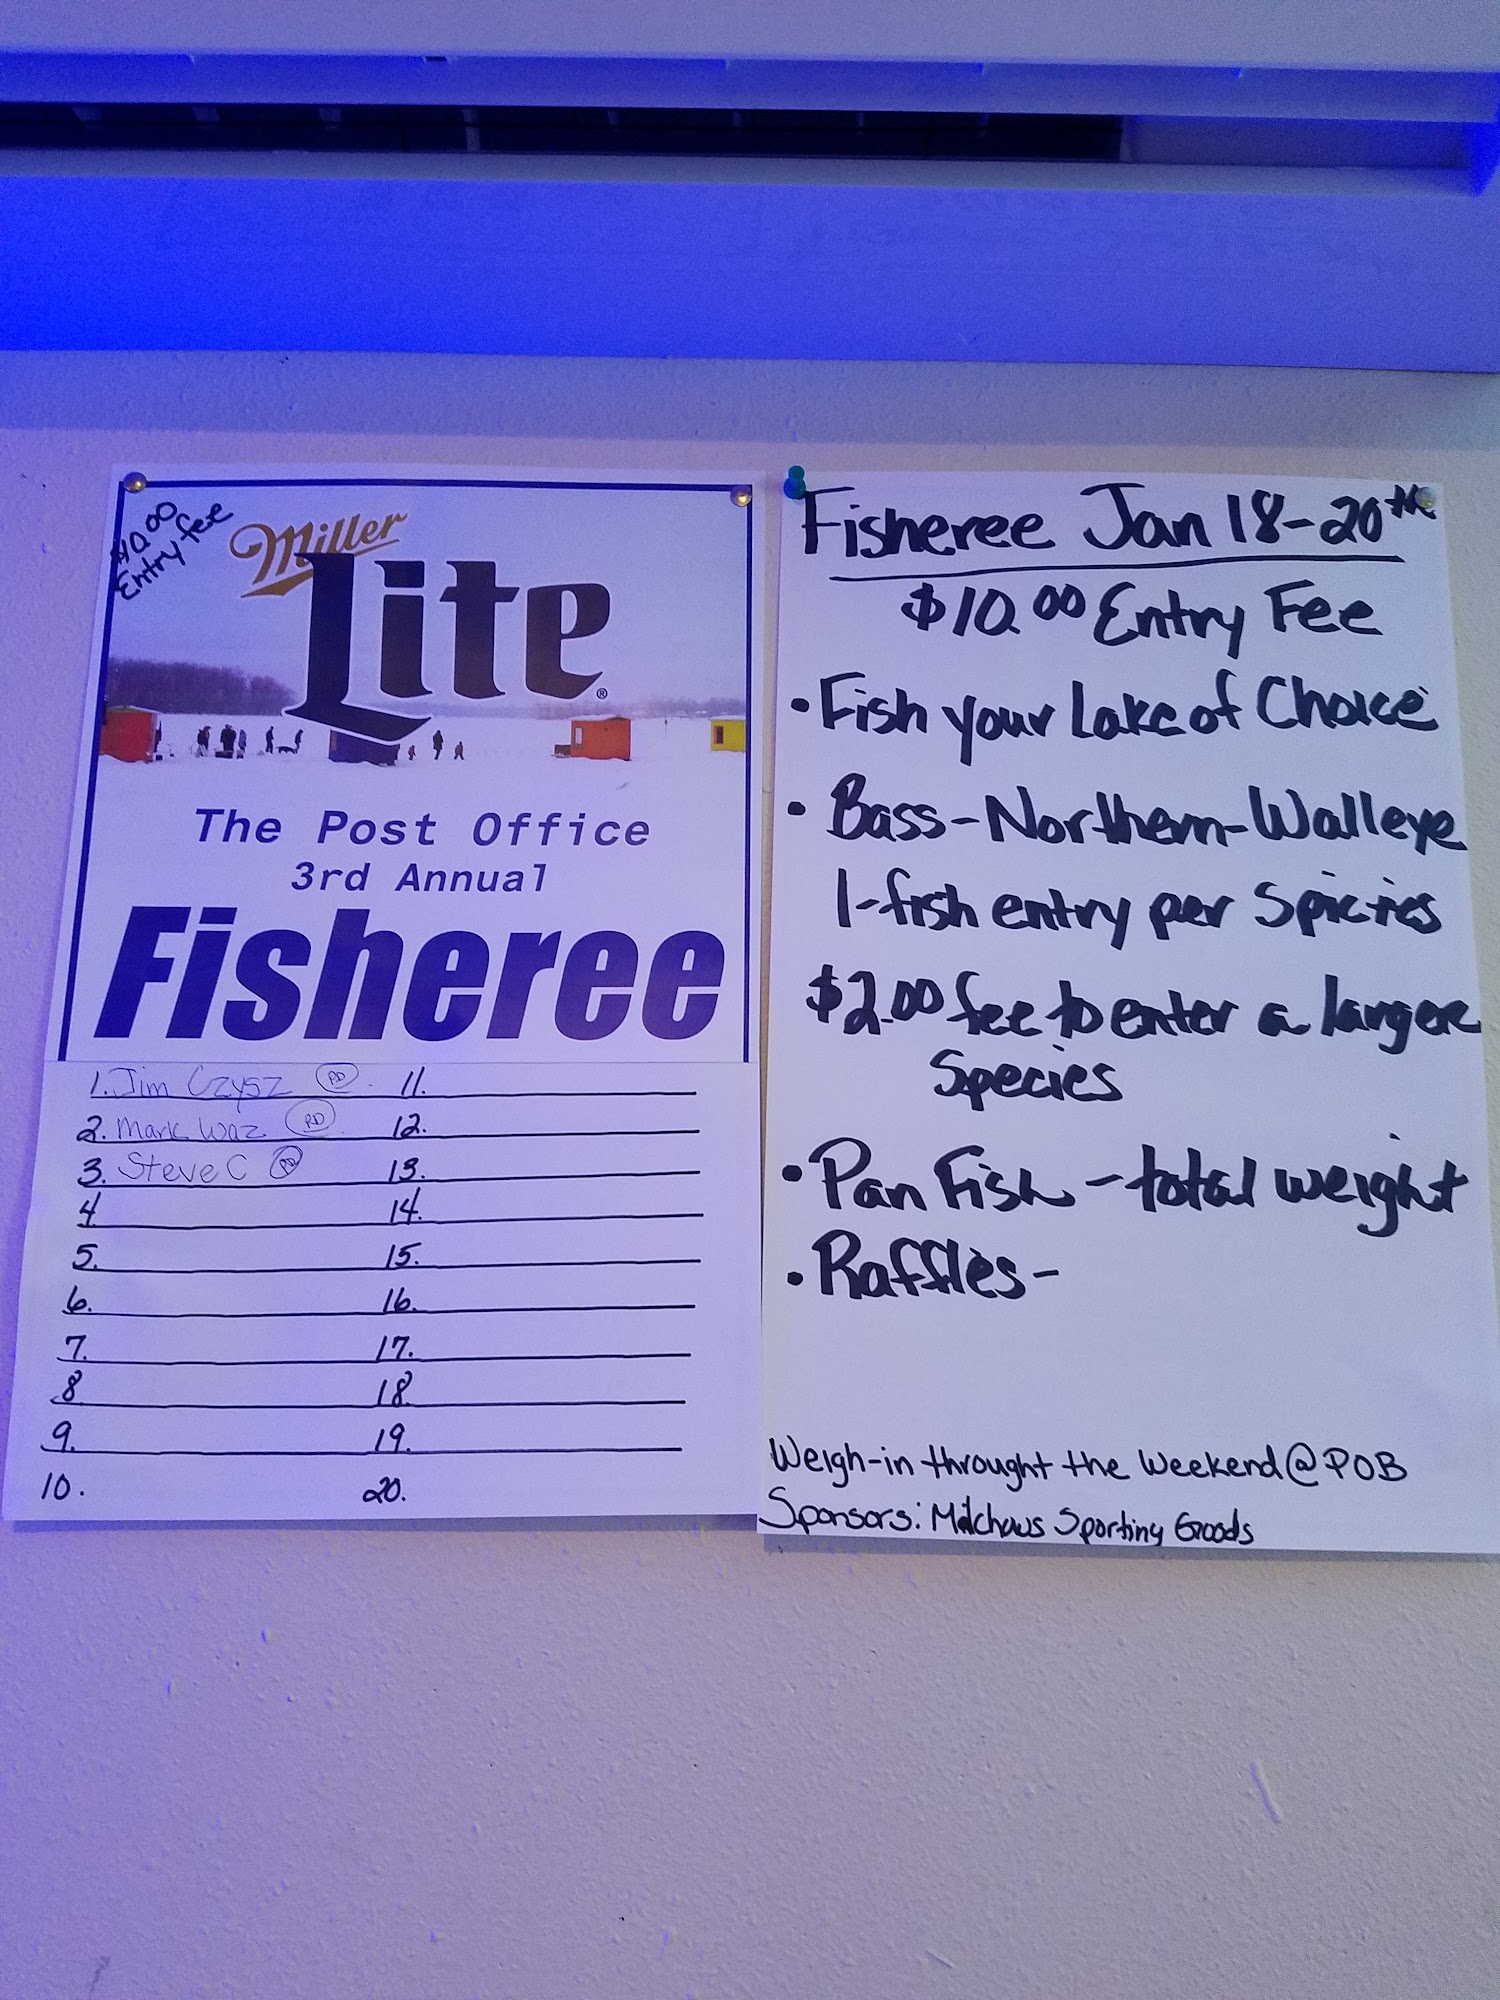 $10.00
Entry fee
Miller
Lite
®
The Post Office
3rd Annual
Fisheree
1. Jim Czysz PD 11.
2. Mark Waz PD 12.
3. Steve C PD 13.
4 14.
5. 15.
6. 16.
7. 17.
8 18.
9. 19.
10. 20.
Fisheree Jan 18-20th
$10.00 Entry Fee
• Fish your Lake of Choice
• Bass-Northern-Walleye
1-fish entry per Spicies
$2.00 fee to enter a larger
Species
• Pan Fish - total weight
• Raffles-
Weigh-in throught the weekend @ POB
Sponsors: Sporting Goods